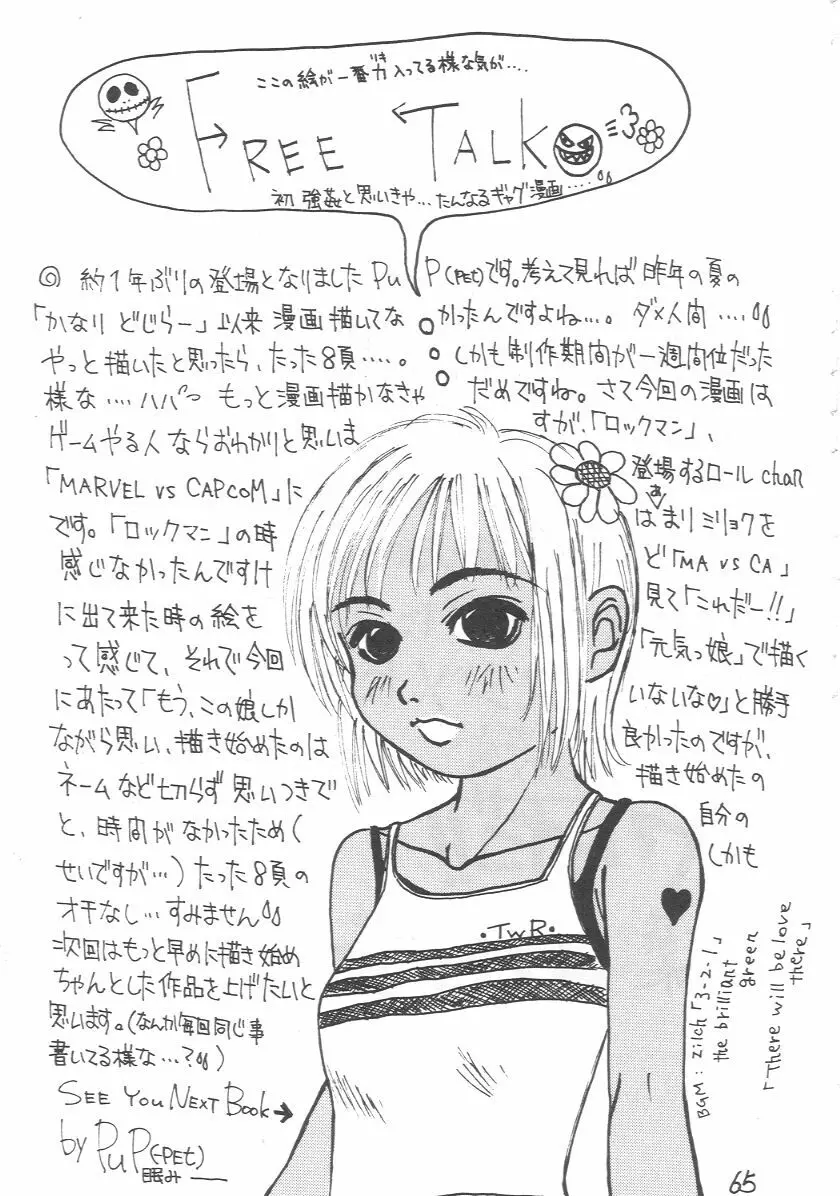 ここの絵が一番力入ってる様な気が....
りき
FREE TALK
初 強姦と思いきや...たんなるギャグ漫画....
◎ 約1年ぶりの登場となりました PuP(PEt)です。考えて見れば 昨年の夏の
「かなり どじらー」以来 漫画描いてな かったんですよね...。 ダメ人間 ....
やっと描いたと思ったら、たった8頁....。 しかも制作期間が一週間位だった
様な....ハハハ もっと漫画描かなきゃ だめですね。さて今回の漫画は
ゲームやる人 ならおわかりと思いま すが、「ロックマン」、
「MARVEL vs CAPCOM」に 登場するロール chan
です。「ロックマン」の時 はまりミリョクを
感じなかったんですけ ど「MA vs CA」
に出て来た時の絵を 見て「これだー!!」
って感じて、それで今回 「元気っ娘」で描く
にあたって「もう、この娘しか いないな♡」と勝手
ながら思い、描き始めたのは 良かったのですが、
ネームなど切らず思いつきで 描き始めたの
と、時間がなかったため( 自分の
せいですが...)たった8頁の しかも
オチなし...すみません
次回はもっと早めに描き始め
ちゃんとした作品を上げたいと
思います。(なんか毎回同じ事
書いてる様な...?)
SEE YOU NEXT BOOK→
by PuP(-PEt)
眠み
・TWR・
BGM: zilch「3-2-1」
the brilliant green
「There will be love there」
65